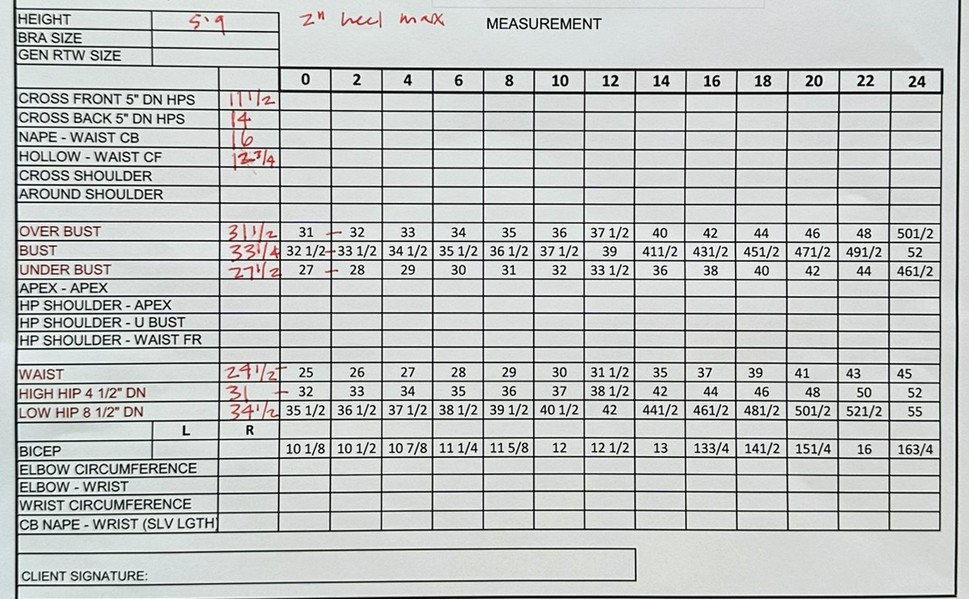 HEIGHT 5'9 2" heel max MEASUREMENT
BRA SIZE
GEN RTW SIZE
0 2 4 6 8 10 12 14 16 18 20 22 24
CROSS FRONT 5" DN HPS 11 1/2
CROSS BACK 5" DN HPS 14
NAPE - WAIST CB 16
HOLLOW - WAIST CF 12 3/4
CROSS SHOULDER
AROUND SHOULDER
OVER BUST 31 1/2 31 – 32 33 34 35 36 37 1/2 40 42 44 46 48 501/2
BUST 33 1/4 32 1/2 – 33 1/2 34 1/2 35 1/2 36 1/2 37 1/2 39 411/2 431/2 451/2 471/2 491/2 52
UNDER BUST 27 1/2 27 – 28 29 30 31 32 33 1/2 36 38 40 42 44 461/2
APEX - APEX
HP SHOULDER - APEX
HP SHOULDER - U BUST
HP SHOULDER - WAIST FR
WAIST 24 1/2 – 25 26 27 28 29 30 31 1/2 35 37 39 41 43 45
HIGH HIP 4 1/2" DN 31 – 32 33 34 35 36 37 38 1/2 42 44 46 48 50 52
LOW HIP 8 1/2" DN 34 1/2 35 1/2 36 1/2 37 1/2 38 1/2 39 1/2 40 1/2 42 441/2 461/2 481/2 501/2 521/2 55
L R
BICEP 10 1/8 10 1/2 10 7/8 11 1/4 11 5/8 12 12 1/2 13 133/4 141/2 151/4 16 163/4
ELBOW CIRCUMFERENCE
ELBOW - WRIST
WRIST CIRCUMFERENCE
CB NAPE - WRIST (SLV LGTH)
CLIENT SIGNATURE: